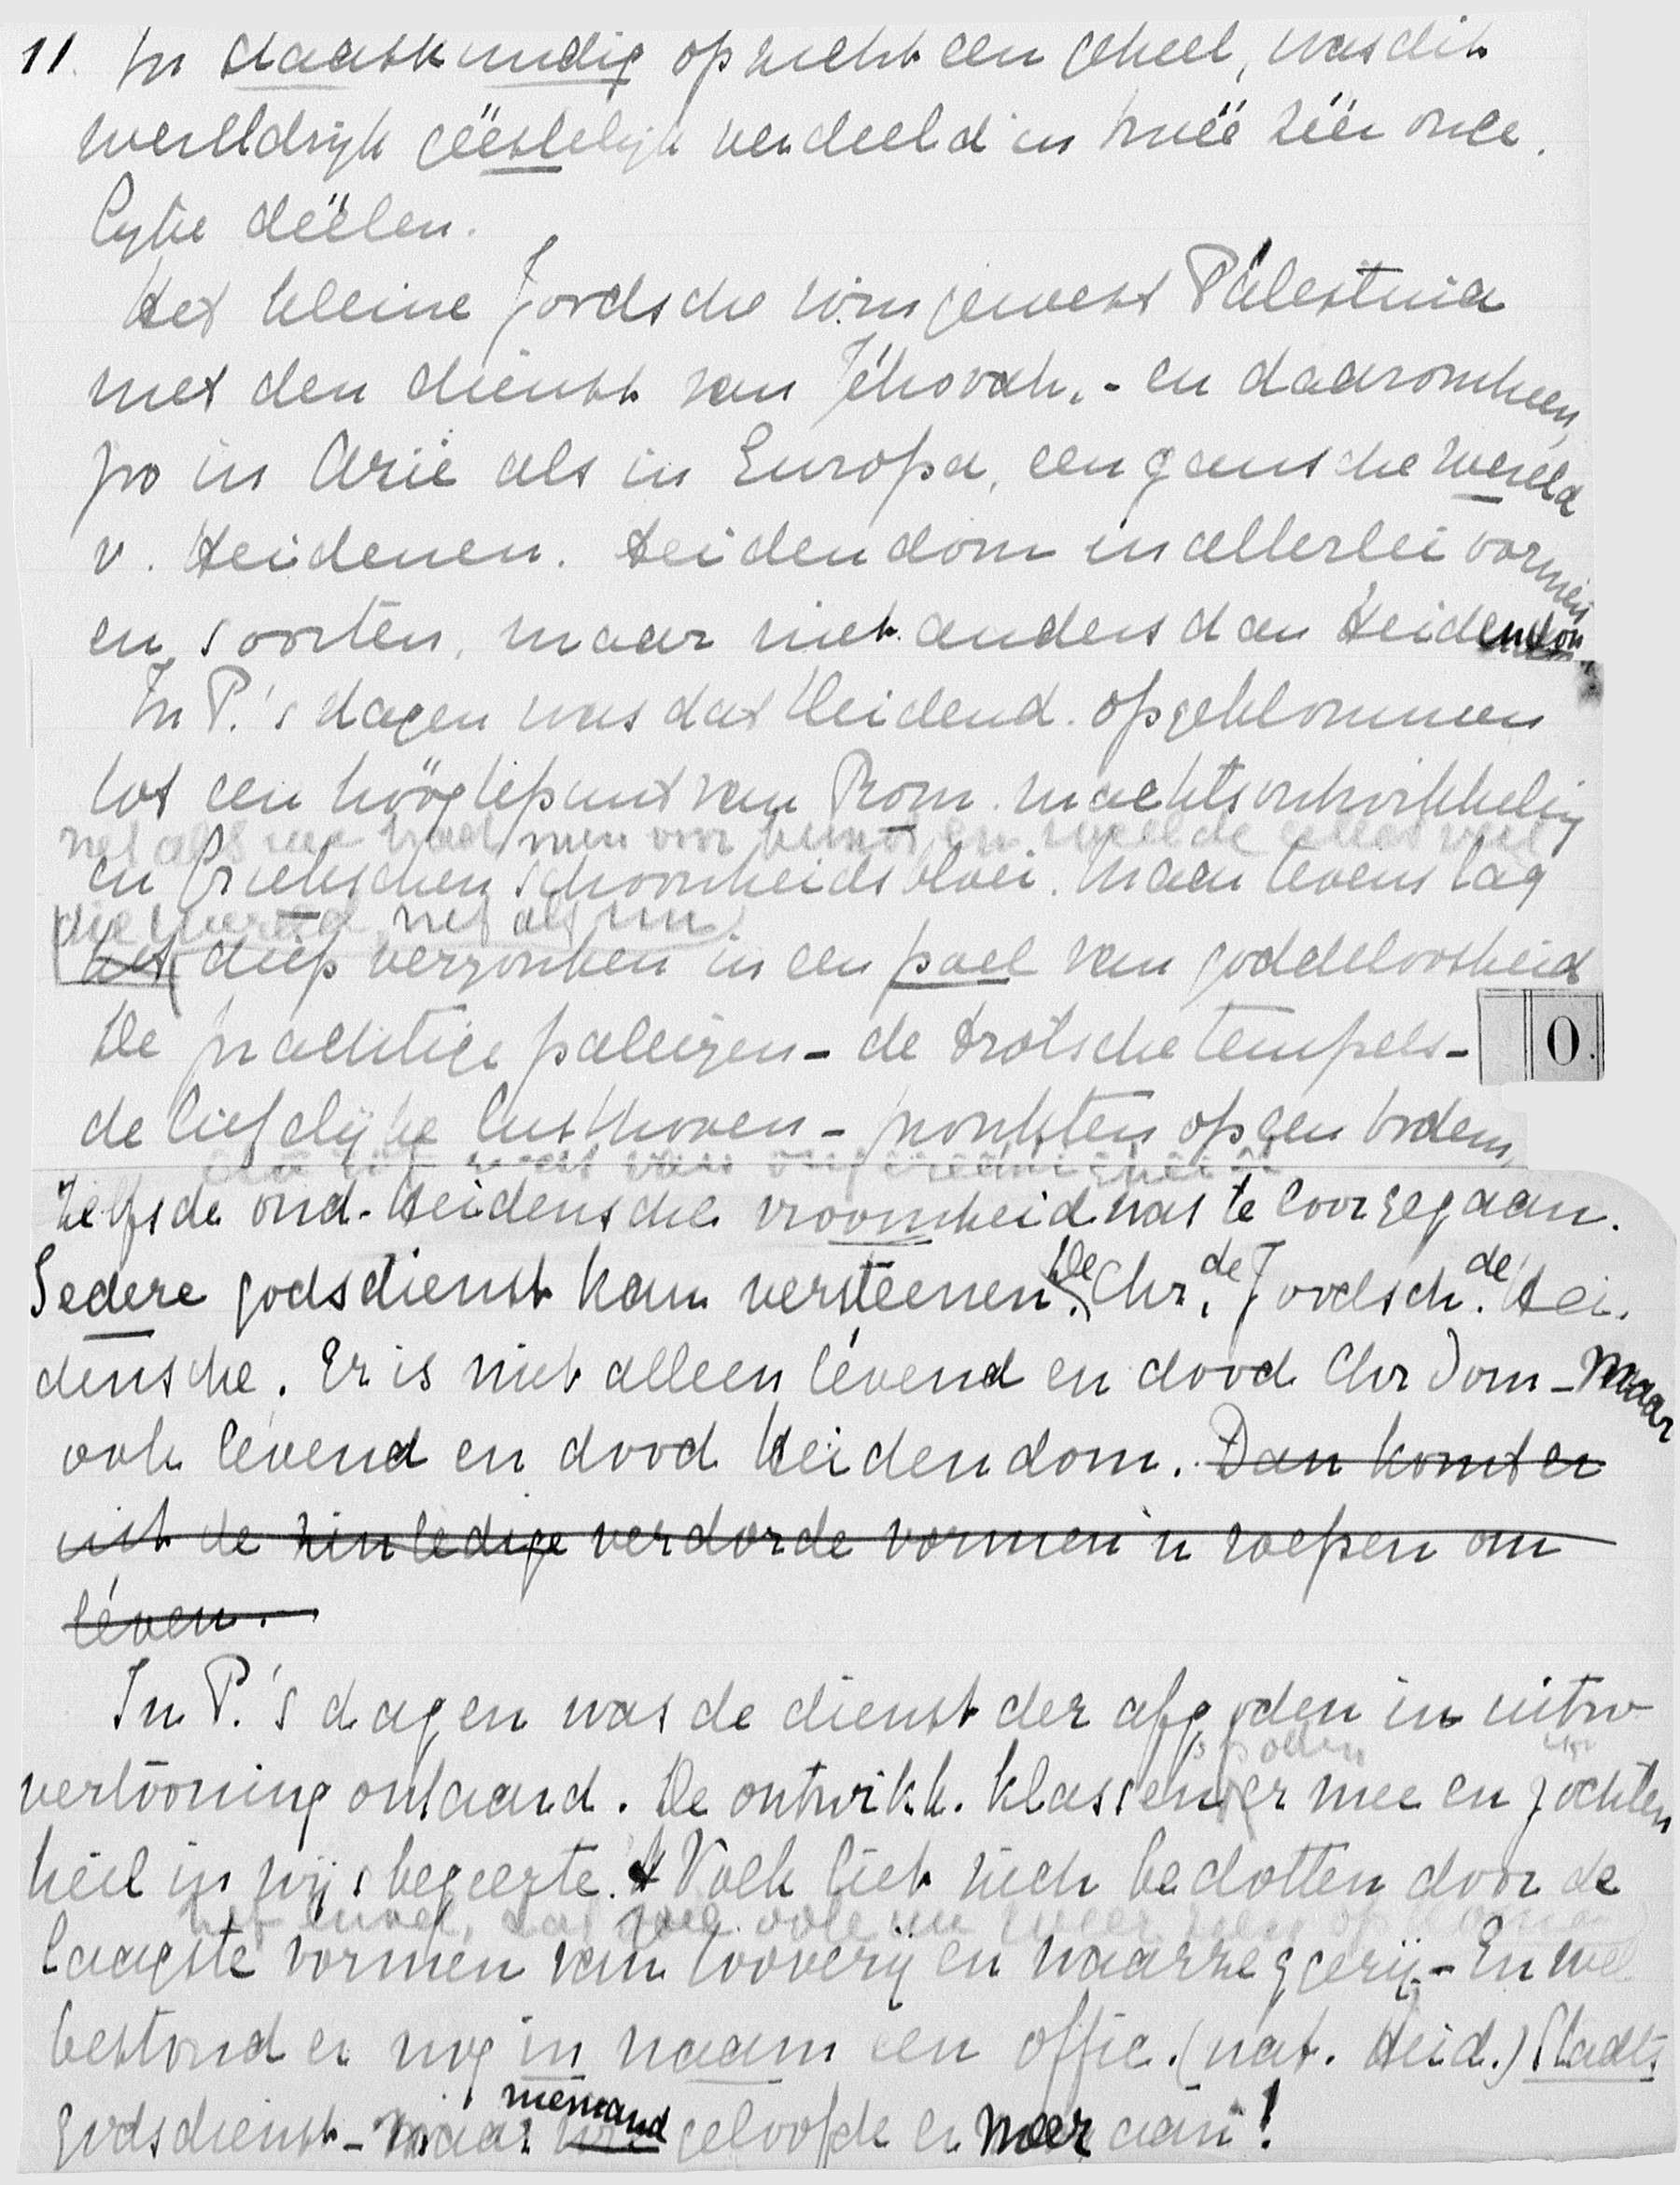 11. In staatkundig opzicht een geheel, was dit
wereldrijk géëstelijk verdeeld in twéë zéër onge.
lijke déëlen.
Het kleine Joodsche wingewest Pálestina
met den dienst van Jéhovah, - en daaromheen,
zo in Azië als in Europa, een gansche wereld
v. Heidenen. Heidendom in allerlei vormen
en soorten, maar niet anders dan Heidendom.
In P.'s dagen was dat Heidend. opgeklommen
tot een höögtepunt van Rom. machtsontwikkeling
net als nu had men voor kunst en weelde alles veel
en Griekschen schoonheidsbloei. Maar tevens lag
die wereld, net als nu,
het diep verzonken in een poel van goddeloosheid
De prachtige paleizen - de trotsche tempels -
O.
de liefelijke lusthoven - pronkten op een bodem,
Zelfs de oud-Heidensche vroomheid was te loor gegaan.
Iedere godsdienst kan versteenen. De Chr., de Joodsch. de Hei.
densche. Er is niet alleen lévend en dood Chrdom - maar
ook lévend en dood Heidendom. Dan komt er
uit de zinledige verdorde vormen 'n roepen om
léven.
In P.'s dagen was de dienst der afgoden in uitw
vertooning ontaard. De ontwikk. klassen er mee en zochten
heil in wijsbegeerte. 't Volk liet zich bedotten door de
laagste vormen van toverij en waarzeggerij - En wel
bestond er nog in naam een offic. (nat. Heid.) Stadts
godsdienst - maar niemand geloofde er meer aan!